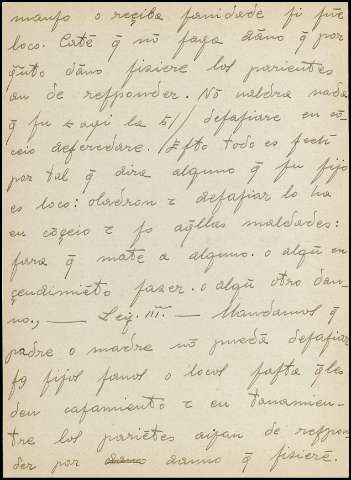 manso o reçiba sanidade si fũe
loco. Catẽ q̃ nõ faga dãno q̃ por
q̃nto dãno fiziere los parientes
an de responder. Nõ valdra nada
q̃ su
defafiare en cõ
ceio deferedare. Esto todo es fech
por tal q̃ dira alguno q̃ su fijo
es loco: oladron τ defafiar lo ha
en cõçeio τ fs aq̃llas maldades:
fara q̃ mate a alguno. o algũ en
çendimiẽto fazer. o algũ otro dan-
no., — Leẏ. III. — Mandamos q̃
padre o madre nõ puedã defafiar
fs fijos sanos o locos fasta q̃les
den casamiento τ en tanamien-
tre los pariẽtes aẏan de respon
der por danno q̃ fisierẽ.